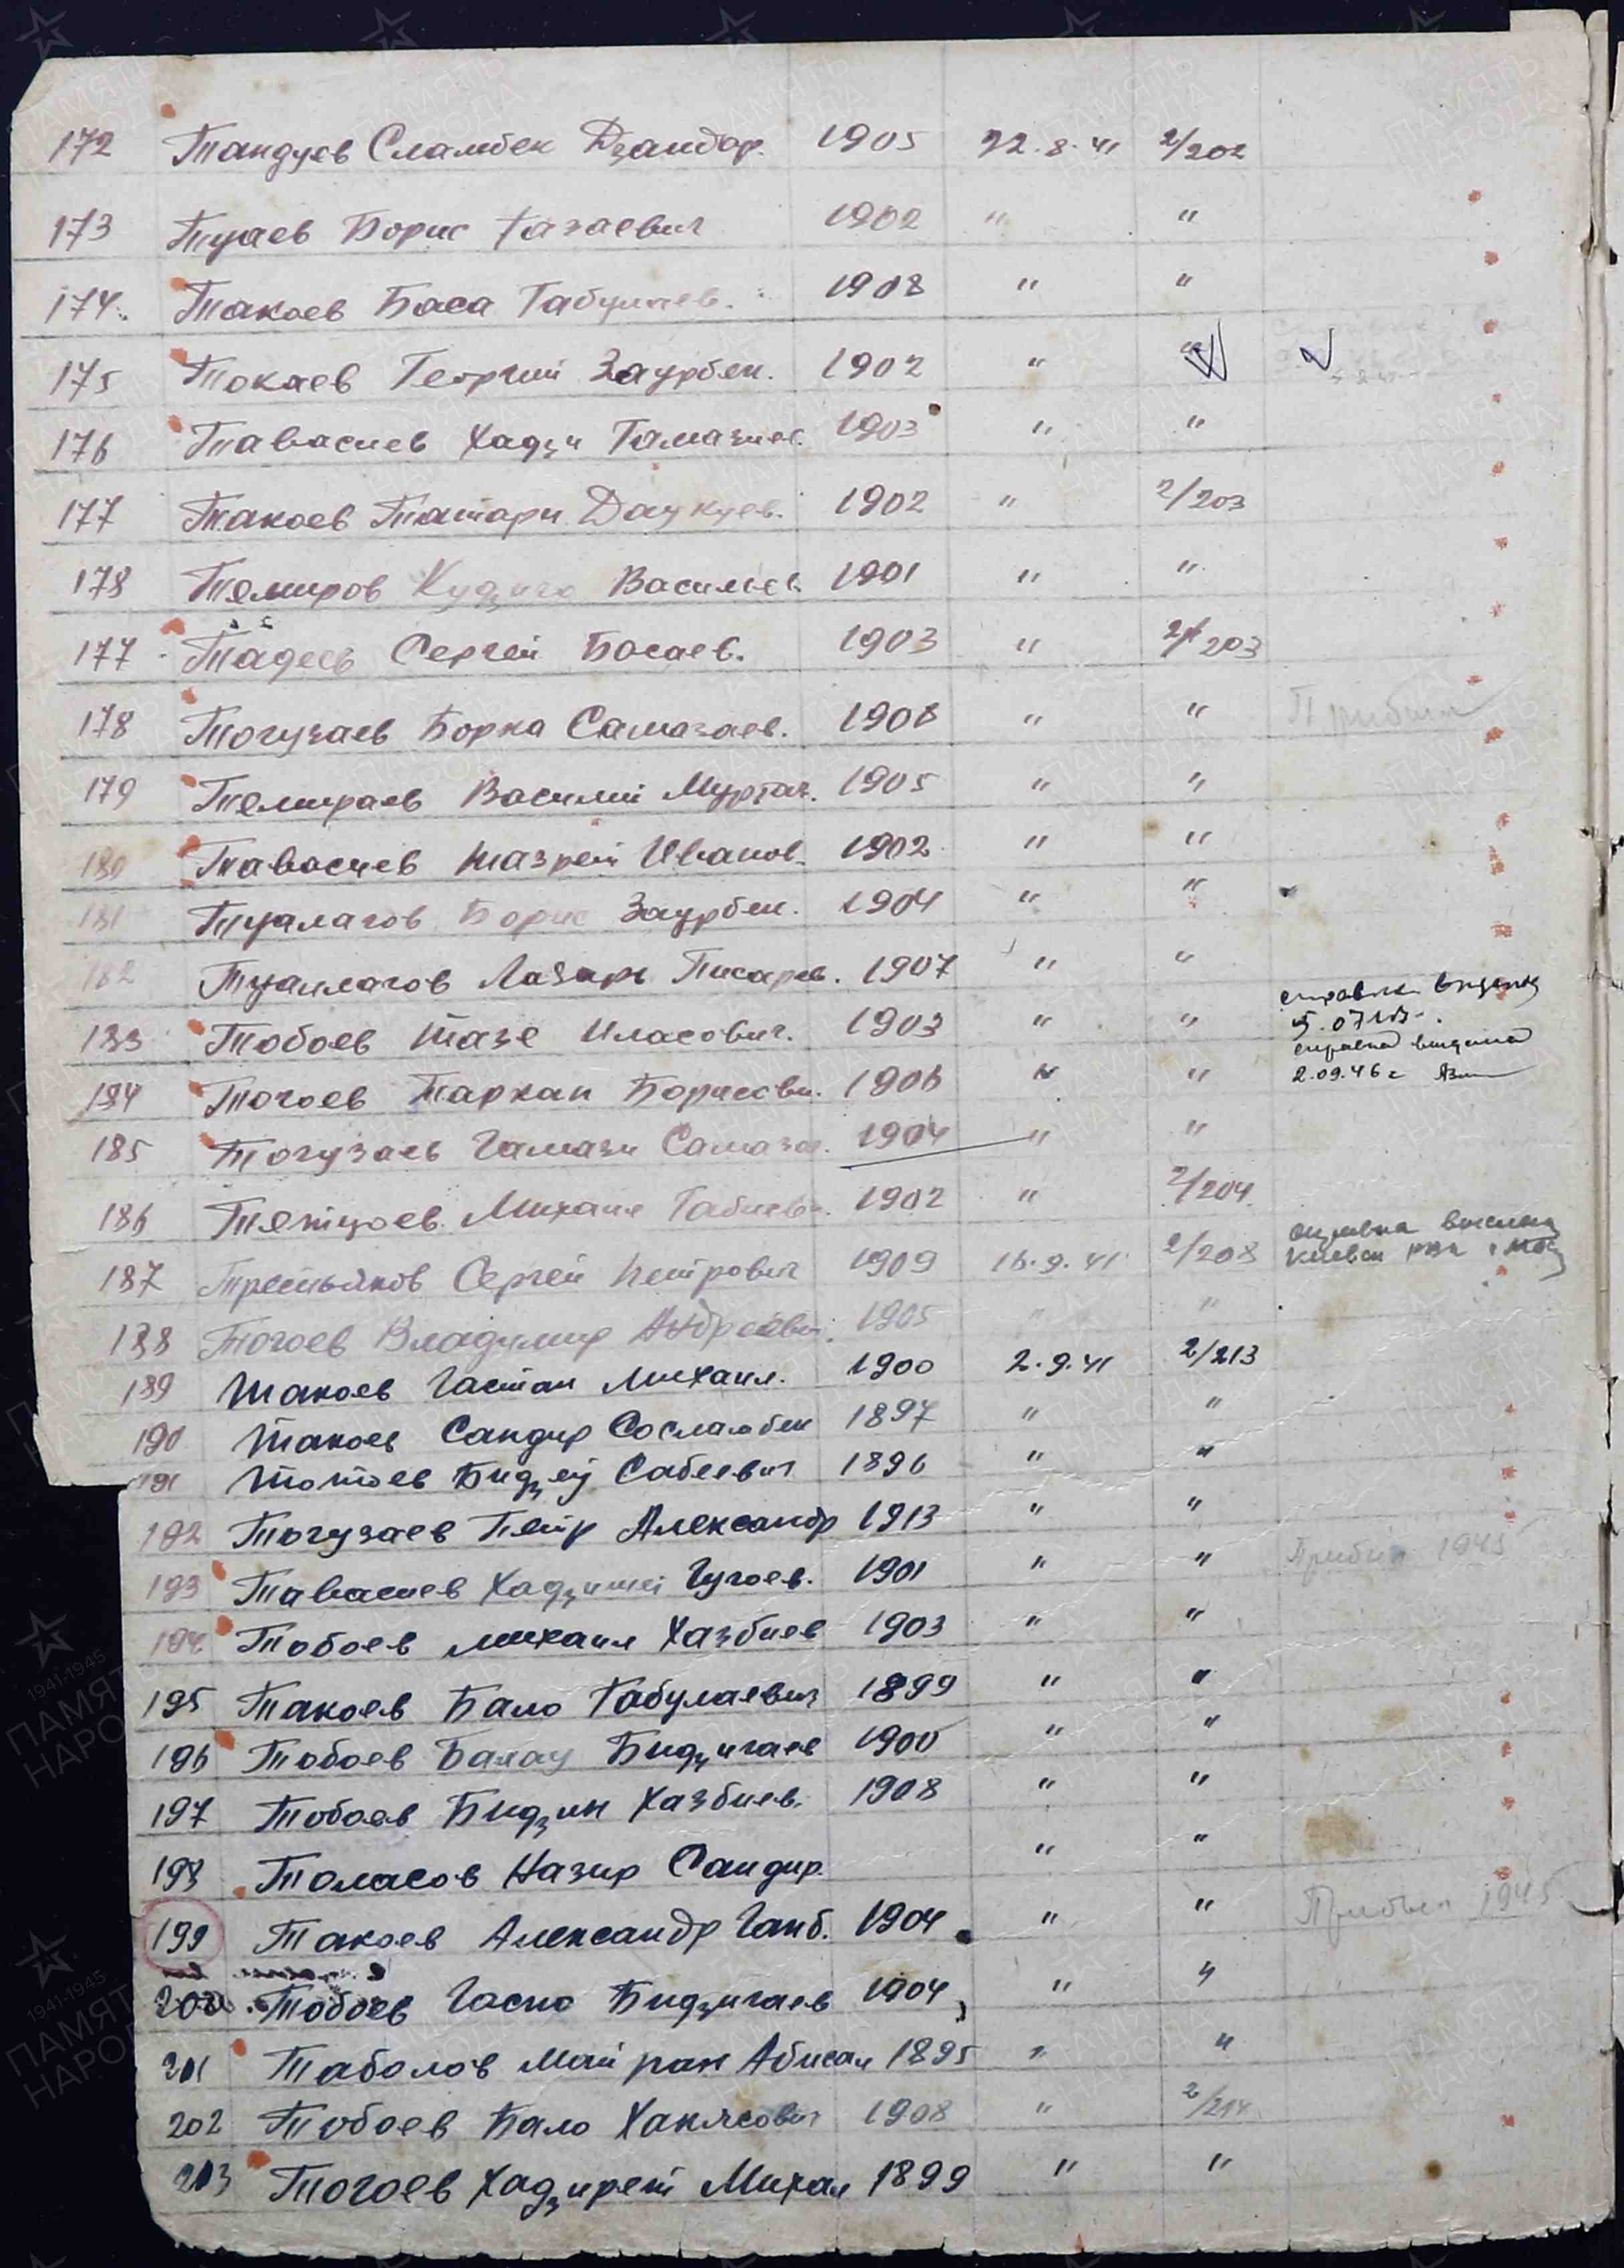 172 Тандуев Сламбек Дзандар. 1905 22.8.41 2/202
173 Туаев Борис Газаевич 1902 " "
174. Такоев Баса Габулаев. 1908 " "
175 Токаев Георгий Заурбек. 1902 " "
176 Тавасиев Хадзи Гамазиев. 1903 " "
177 Такоев Татари Даукуев. 1902 " 2/203
178 Темиров Василье. 1901 " "
177 Тадеев Сергей Басаев. 1903 " 2/203
178 Тогузаев Борка Самазаев. 1908 " " Прибыл
179 Темираев Василий Муртаз. 1905 " "
180 Тавасиев Иванов. 1902 " "
181 Туалагов Борис Заурбек. 1904 " "
182 Туаллагов Лазарь Писарев. 1907 " "
183 Тобоев Тазе Иласович. 1903 " " справка выдана
справка выдана
184 Тогоев Таркан Борисови. 1906 " " 2.09.46 г
185 Тогузаев Гамази Самаза. 1904 " "
186 Тетцоев Михаил Габиеви. 1902 " 2/204
187 Третьяков Сергей Петрович 1909 16.9.41 2/208 справка выслана
188 Тогоев Владимир Андреевич. 1905 " "
189 Такоев Гастан Михаил. 1900 2.9.41 2/213
190 Такоев Сандир Сосламбек 1897 " "
191 Тотоев Бидзеу Сабеевич 1896 " "
192 Тогузаев Петр Александр 1913 " "
193 Тавасиев Гугоев. 1901 " " Прибыл 1945
194. Тобоев Михаил Хазбиев 1903 " "
195 Такоев Бало Габулаевич 1899 " "
196 Тобоев Балау Бидзигаев 1900 " "
197 Тобоев Бидзин Хазбиев. 1908 " "
198 Толасов Назир Сандир. " "
199 Такоев Александр Ганб. 1904 " " Прибыл 1945
200 Тобоев Гасно Бидзигаев 1904 " "
201 Таболов Майран Абисал 1895 " "
202 Тобоев Бало Хакясович 1908 " 2/214
203 Тогоев Хадзирет Михал 1899 " "